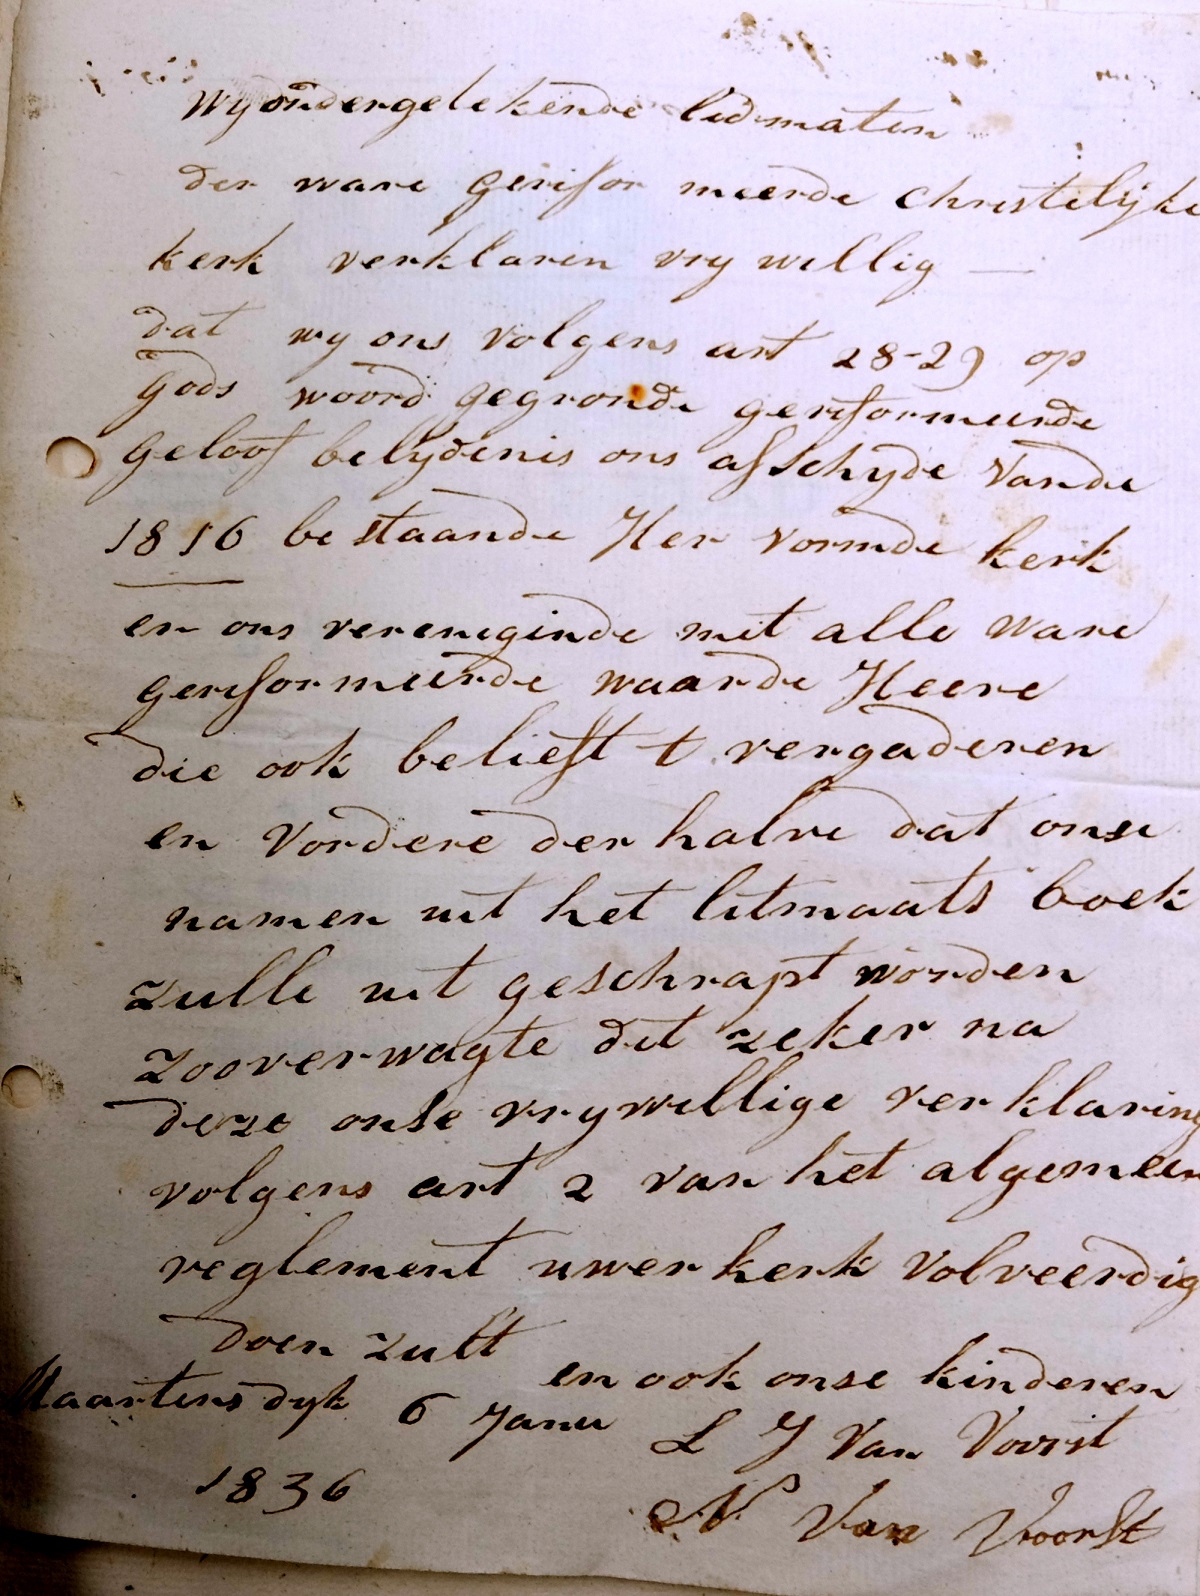 wy ondergetekende lidmaten
der ware gerefor meerde christelijke
kerk verklaren vry willig —
dat wy ons volgens art 28-29 op
gods woord gegronde gereformeerde
geloof belydenis ons afschyde vande
1816 be staande Her vormde kerk
en ons vereneginde met alle ware
gereformeerde waarde Heere
die ook belieft t vergaderen
en vordere der halve dat onse
namen uit het litmaats boek
zulle uit geschrapt worden
zooverwagte dit zeker na
deze onse vrywillige verklaring
volgens art 2 van het algemeen
reglement uwer kerk volveerdig
doen zult
en ook onse kinderen
Maartensdyk 6 Janu
L J Van Voorst
1836
N Van Voorst